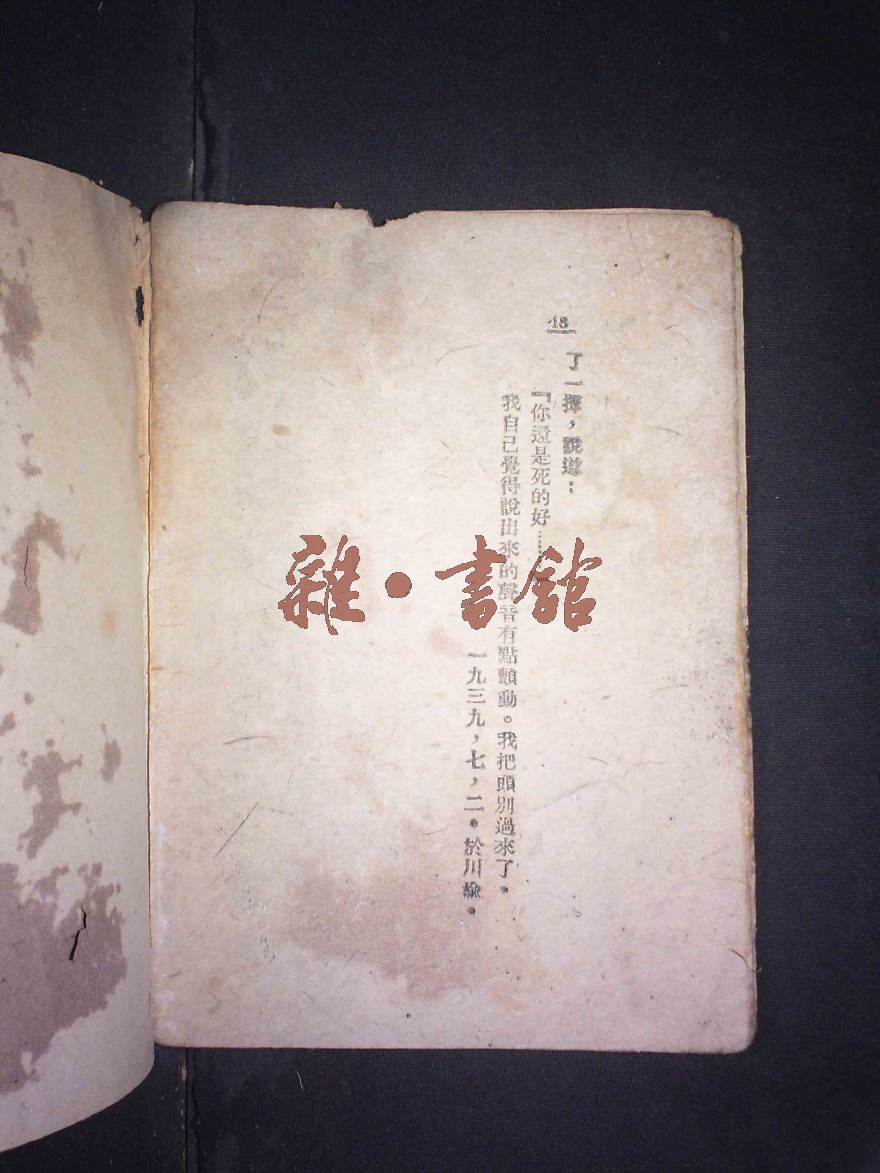 18
了一揮，說道：
『你還是死的好……
我自己覺得說出來的聲音有點顫動。我把頭別過來了。
一九三九，七，二。於川
雜·書館